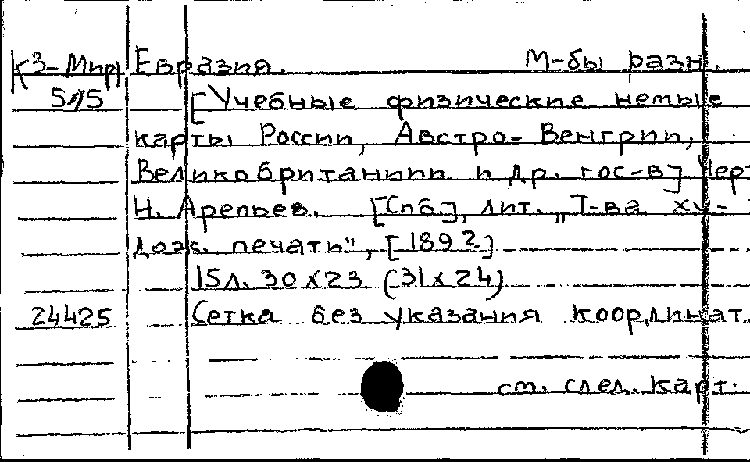 К3-Мир Евразия. М-бы разн.
5/15 [Учебные физические немые
карты России, Австро-Венгрии,
Великобритании и др. гос-в] Черт.
Н. Арепьев. [Спб], лит. „Т-ва ху-
дож. печать", [1892]
15л. 30х23 (31х24)
24425 Сетка без указания координат.
см. след. карт.